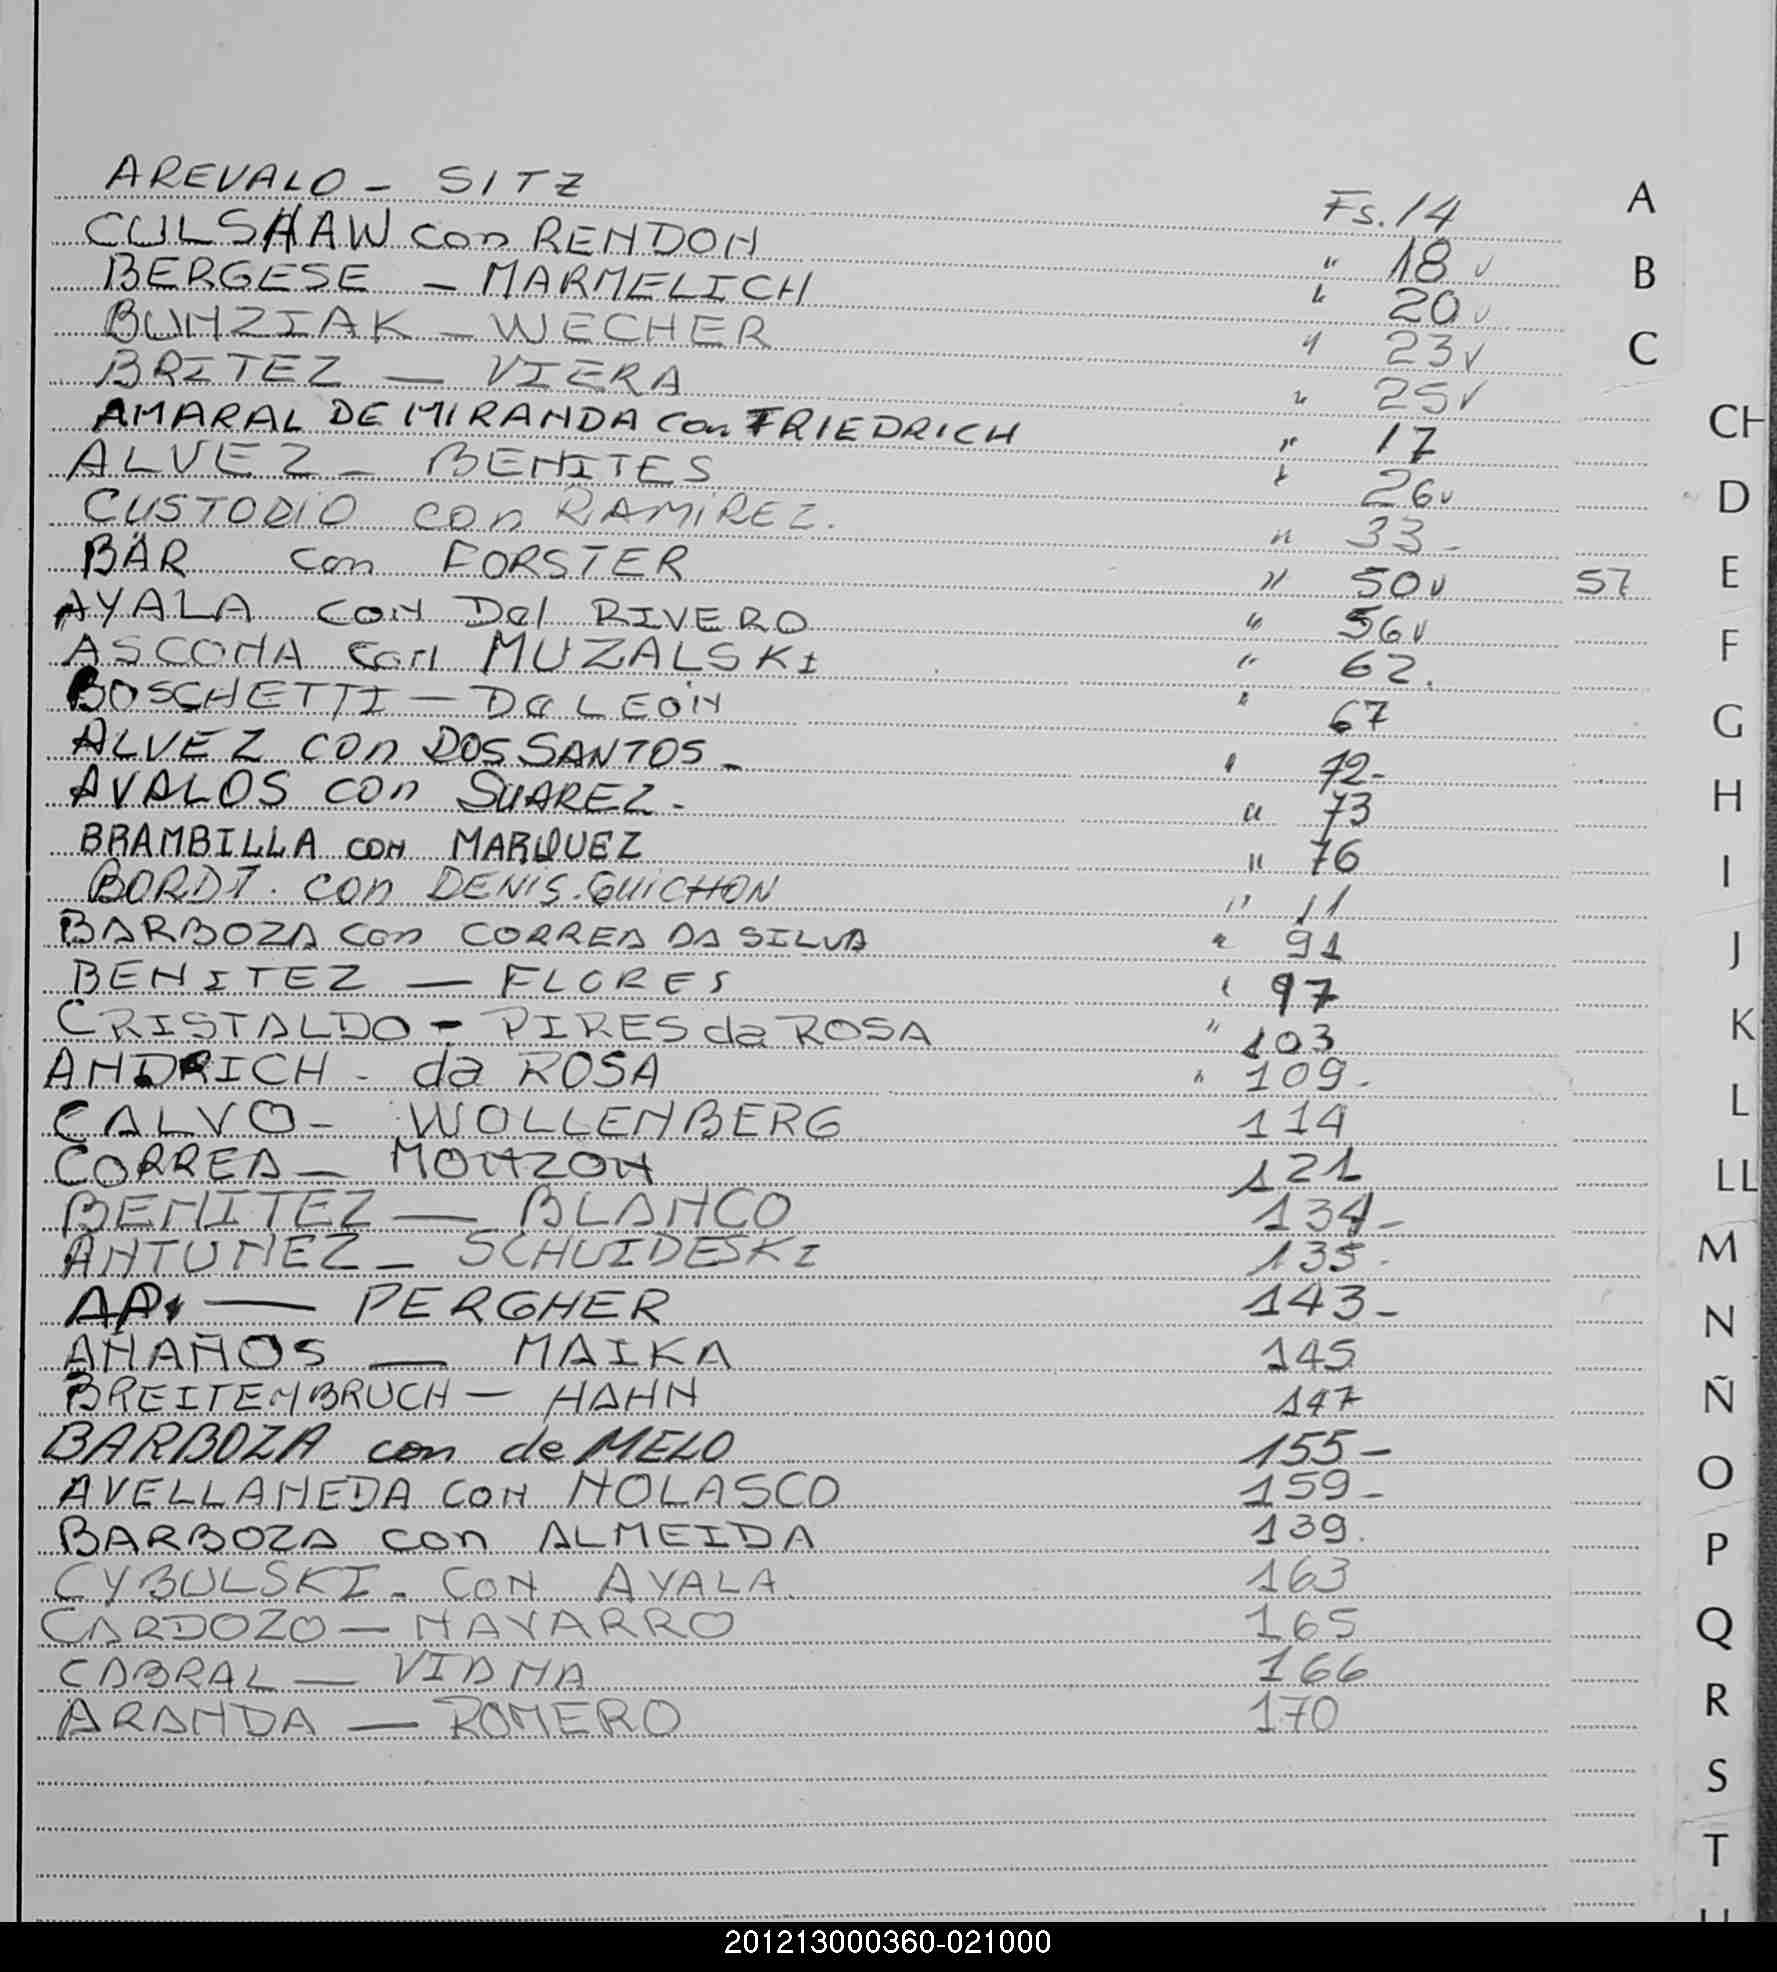 AREVALO - SITZ Fs. 14 A
CULSHAW con RENDON " 18 v B
BERGESE - MARMELICH " 20 v
BUNZIAK - WECHER " 23 v C
BRITEZ — VIERA " 25 v
AMARAL DE MIRANDA con FRIEDRICH " 17 CH
ALVEZ - BENITES " 26 v D
CUSTODIO con RAMIREZ. " 33 -
BÄR con FORSTER " 50 v 57 E
AYALA CON Del RIVERO " 56 v
ASCONA con MUZALSKI " 62. F
BOSCHETTI - De LEÓN " 67 G
ALVEZ con DOS SANTOS - " 72 -
AVALOS con SUAREZ - " 73 H
BRAMBILLA CON MARQUEZ " 76 I
BORDT. con DENIS. GUICHON " 11
BARBOZA con CORREA DA SILVA " 91 J
BENITEZ — FLORES " 97
CRISTALDO - PIRES da ROSA " 103 K
ANDRICH - da ROSA " 109 -
CALVO - WOLLENBERG 114 L
CORREA - MONZON 121 LL
BENITEZ — BLANCO 134 -
ANTUNEZ - SCHUIDESKI 135 - M
— PERGHER 143 - N
AÑAÑOS — MAIKA 145
BREITEMBRUCH - HAHN 147 Ñ
BARBOZA con de MELO 155 -
AVELLANEDA CON NOLASCO 159 - O
BARBOZA con ALMEIDA 139. P
CYBULSKI - CON AYALA 163
CARDOZO - NAVARRO 165 Q
CABRAL - VIANA 166
ARANDA — ROMERO 170 R
S
T
201213000360-021000